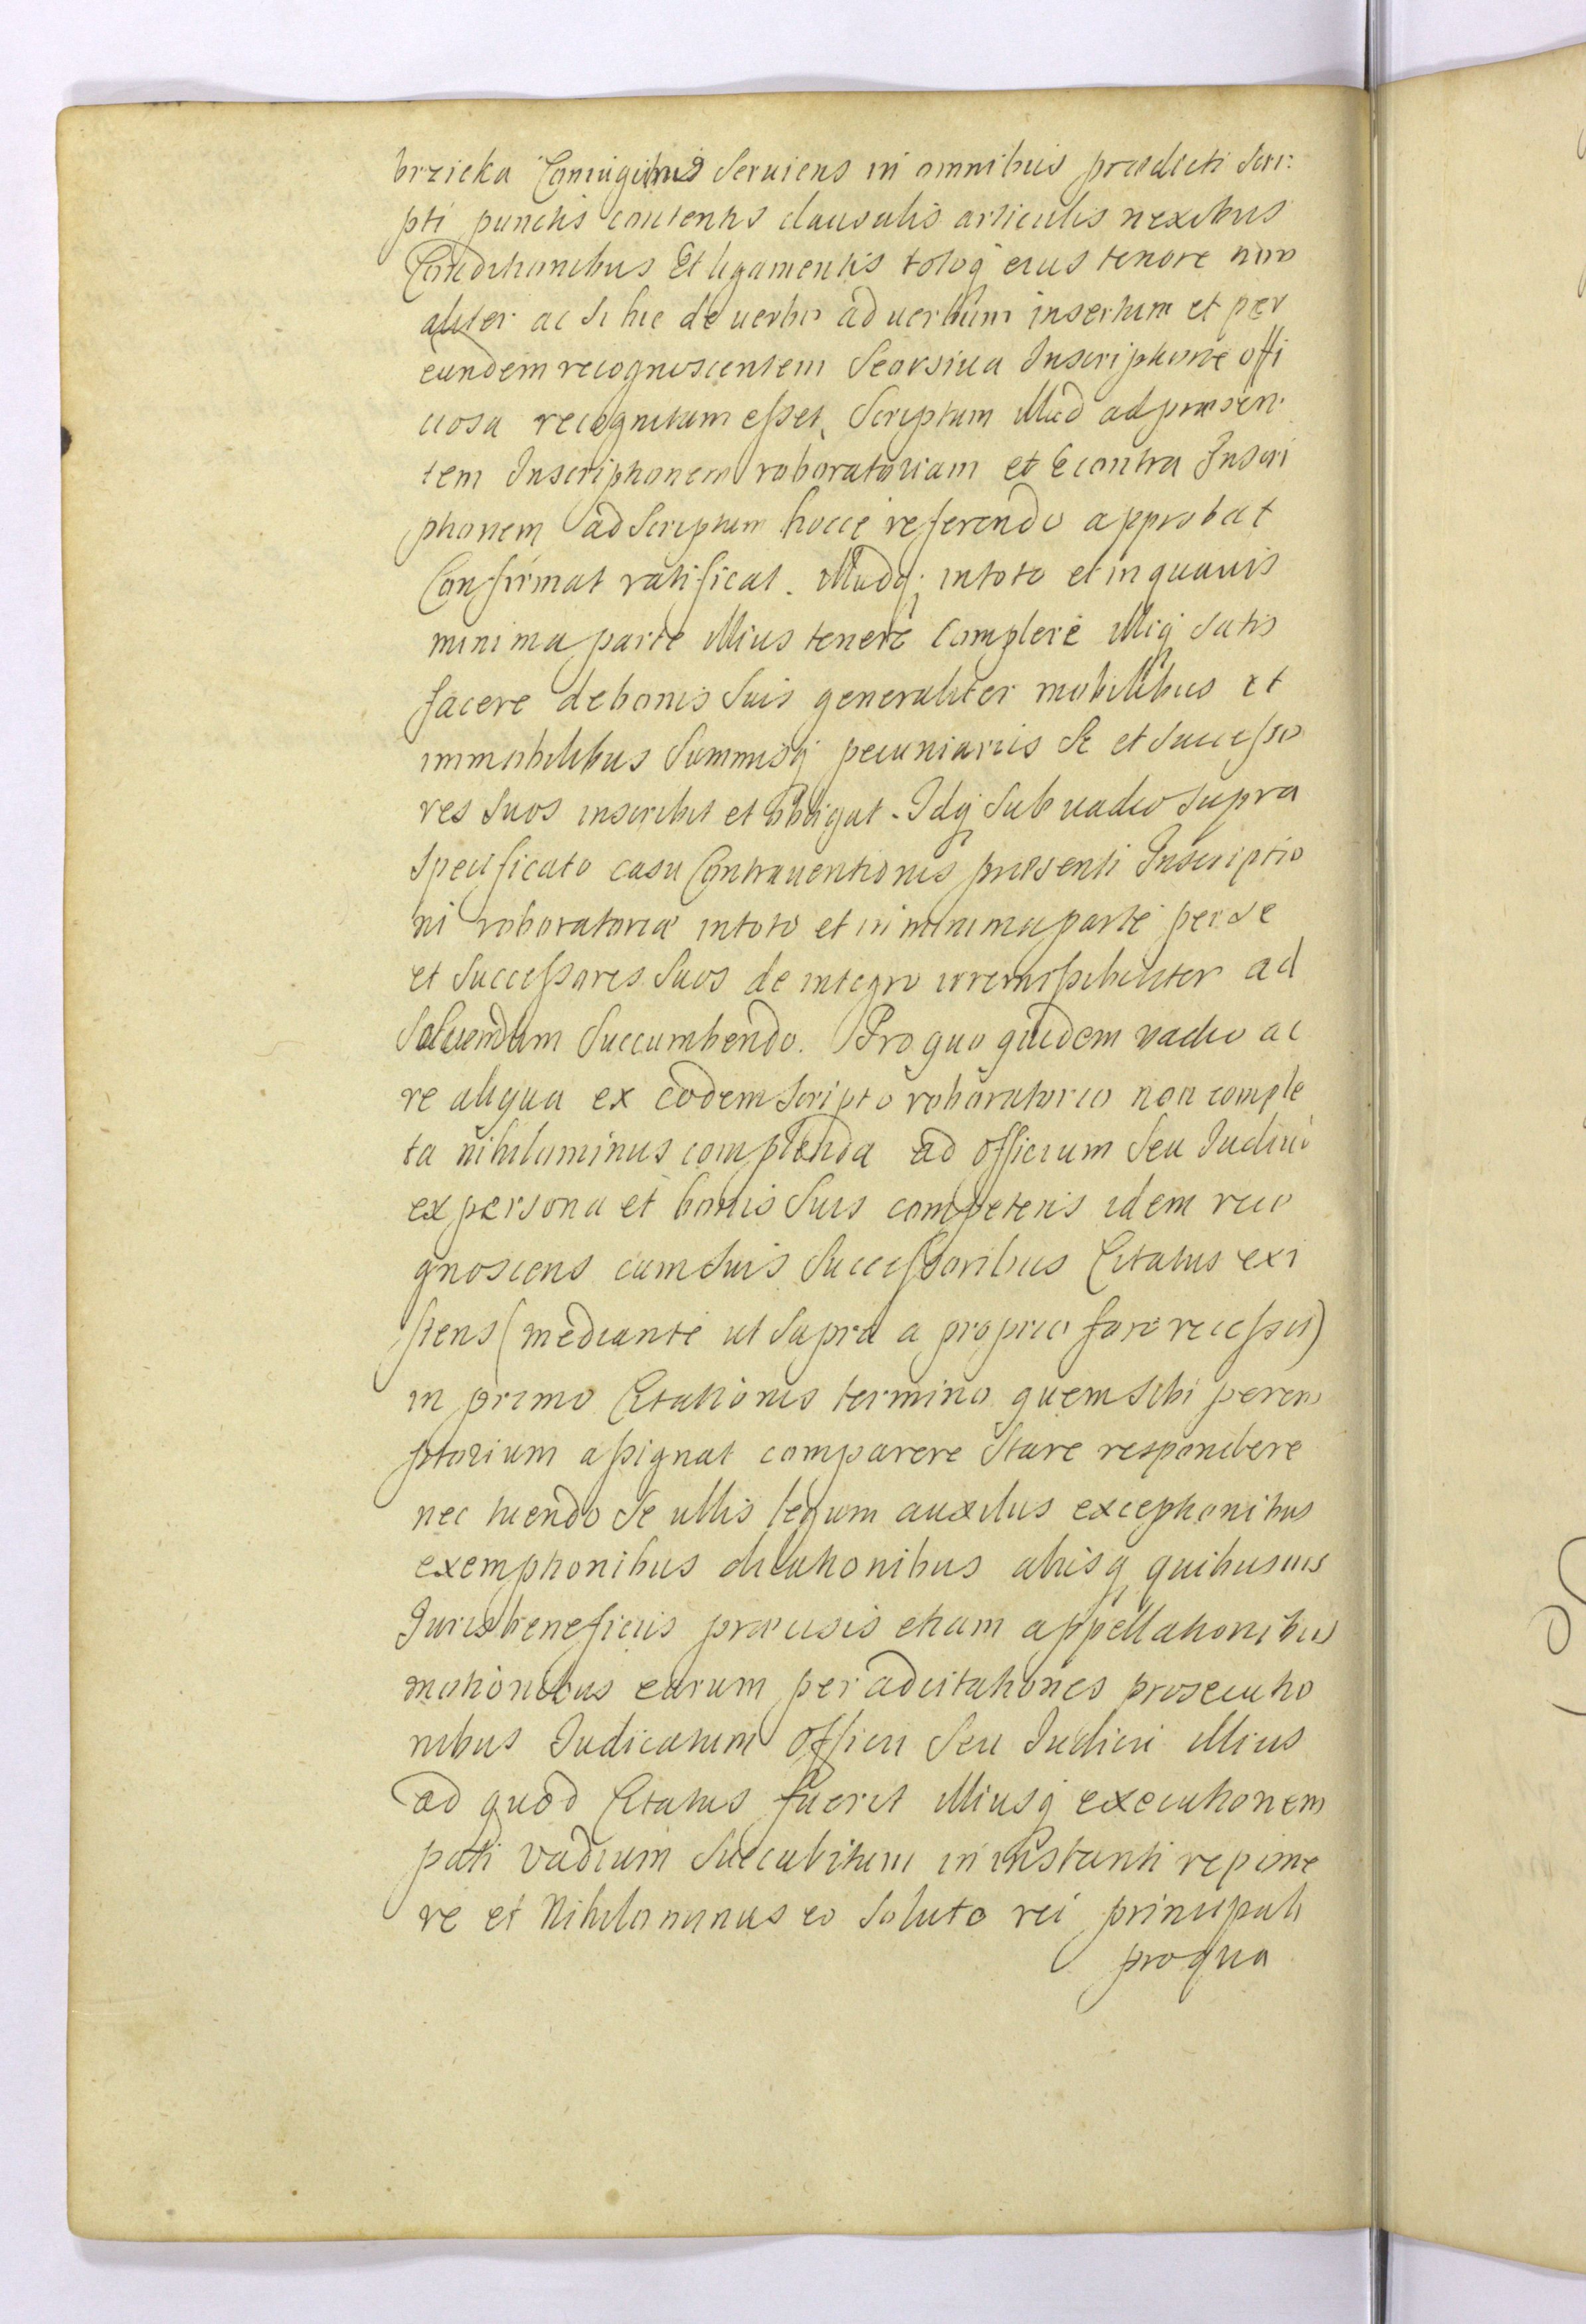 brzicka Coniugibus Seruiens in omnibus praedicti Scri:
pti punctis contentis clausulis articulis nexibus
Conditionibus Et ligamentis totoq eius tenore non
aliter ac si hic de uerbo ad uerbum insertum et per
eundem recognoscentem Seorsiua Inscriptione offi
ciosa recognitum esset, Scriptum illud ad praesen:
tem Inscriptionem roboratoriam et Econtra Inscri
ptionem ad Scriptum hocce referendo approbat
Confirmat ratificat. Illudq; intoto et in quauis
minima parte illius tenere Complere illiq satis
facere debonis Suis generaliter mobilibus et
immobilibus Summisq pecuniariis Se et Successo
res Suos inscribit et obligat. Idq Sub uadio supra
Specificato casu Contrauentionis praesenti Inscriptio
ni roboratoriae intoto et in minima parte per se
et Successores Suos de integro irremissibiliter ad
Soluendum Succumbendo. Pro quo quidem vadio ac
re aliqua ex eodem Scripto roboratorio non comple
ta nihilominus complenda ad Officium Seu Iudicii
ex persona et bonis Suis competens idem reco
gnoscens cum Suis Successoribus Citatus exi
stens (mediante ut Supra a proprio foro recessu)
in primo Citationis termino quem Sibi perem
ptorium assignat comparere Stare respondere
nec tuendo Se ullis legum auxiliis exceptionibus
exemptionibus dilationibus aliisq quibusuis
Juris beneficiis praecisis etiam appellationibus
motionibus earum per adcitationes prosecutio
nibus Judicatum Officii Seu Iudicii illius
ad quod Citatus fuerit illiusq executionem
pati Vadium Succubitum in instanti repone
re et Nihilominus eo Soluto rei principali
pro qua